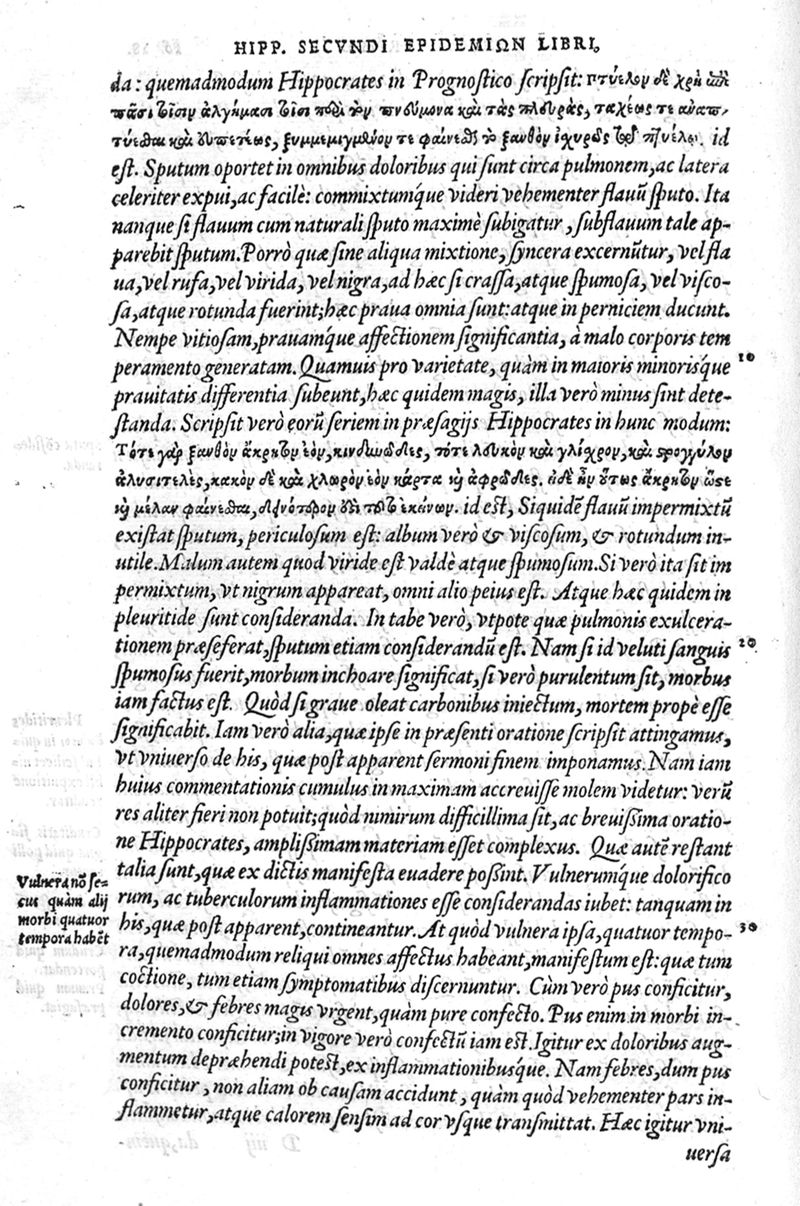 HIPP. SECVNDI EPIDEMIΩN LIBRI.
da: quemadmodum Hippocrates in Prognostico scripsit: πτύελον δὲ χρὴ ἐπὶ
πᾶσι τοῖσιν ἀλγήμασι τοῖσι περὶ τὸν πνεύμονα καὶ τὰς πλευρὰς, ταχέως τε ἀναπ-
τύεσθαι καὶ εὐπετέως, ξυμμεμιγμένον τε φαίνεσθαι τὸ ξανθὸν ἰσχυρῶς τῷ πτυέλῳ. id
est. Sputum oportet in omnibus doloribus qui sunt circa pulmonem, ac latera
celeriter expui, ac facilè: commixtumq́ue videri vehementer flauũ sputo. Ita
nanque si flauum cum naturali sputo maximè subigatur, subflauum tale ap-
parebit sputum. Porrò quæ sine aliqua mixtione, syncera excernũtur, vel fla
ua, vel rufa, vel virida, vel nigra, ad hæc si crassa, atque spumosa, vel visco-
sa, atque rotunda fuerint; hæc praua omnia sunt: atque in perniciem ducunt.
Nempe vitiosam, prauamq́ue affectionem significantia, à malo corporis tem
peramento generatam. Quamuis pro varietate, quàm in maioris minorisq́ue 10
prauitatis differentia subeunt, hæc quidem magis, illa verò minus sint dete-
standa. Scripsit verò eorũ seriem in præsagijs Hippocrates in hunc modum:
Τότε γὰρ ξανθὸν ἄκρητον ἐὸν, κινδυνῶδες, τότε λευκὸν καὶ γλίχρον, καὶ στρογγύλον
ἀλυσιτελὲς, κακὸν δὲ καὶ χλωρὸν ἐὸν κάρτα καὶ ἀφρῶδες. εἰ δὲ ἢν οὕτως ἄκρητον ὥστε
καὶ μέλαν φαίνεσθαι, δεινότερον ἐστι τοῦτο ἐκείνων. id est, Siquidẽ flauũ impermixtũ
existat sputum, periculosum est: album verò & viscosum, & rotundum in-
utile. Malum autem quod viride est valdè atque spumosum. Si verò ita sit im
permixtum, vt nigrum appareat, omni alio peius est. Atque hæc quidem in
pleuritide sunt consideranda. In tabe verò, vtpote quæ pulmonis exulcera-
tionem præseferat, sputum etiam considerandũ est. Nam si id veluti sanguis 20
spumosus fuerit, morbum inchoare significat, si verò purulentum sit, morbus
iam factus est. Quòd si graue oleat carbonibus iniectum, mortem propè esse
significabit. Iam verò alia, quæ ipse in præsenti oratione scripsit attingamus,
vt vniuerso de his, quæ post apparent sermoni finem imponamus. Nam iam
huius commentationis cumulus in maximam accreuisse molem videtur: verũ
res aliter fieri non potuit; quòd nimirum difficillima sit, ac breuissima oratio-
ne Hippocrates, amplissimam materiam esset complexus. Quæ autẽ restant
talia sunt, quæ ex dictis manifesta euadere possint. Vulnerumq́ue dolorifico
rum, ac tuberculorum inflammationes esse considerandas iubet: tanquam in
his, quæ post apparent, contineantur. At quòd vulnera ipsa, quatuor tempo- 30
ra, quemadmodum reliqui omnes affectus habeant, manifestum est: quæ tum
coctione, tum etiam symptomatibus discernuntur. Cùm verò pus conficitur,
dolores, & febres magis vrgent, quàm pure confecto. Pus enim in morbi in-
cremento conficitur; in vigore verò confectũ iam est. Igitur ex doloribus aug-
mentum depræhendi potest, ex inflammationibusq́ue. Nam febres, dum pus
conficitur, non aliam ob causam accidunt, quàm quòd vehementer pars in-
flammetur, atque calorem sensim ad cor vsque transmittat. Hæc igitur vni-
uersa
Vulnera nõ se=
cus quàm alij
morbi quatuor
tempora habẽt